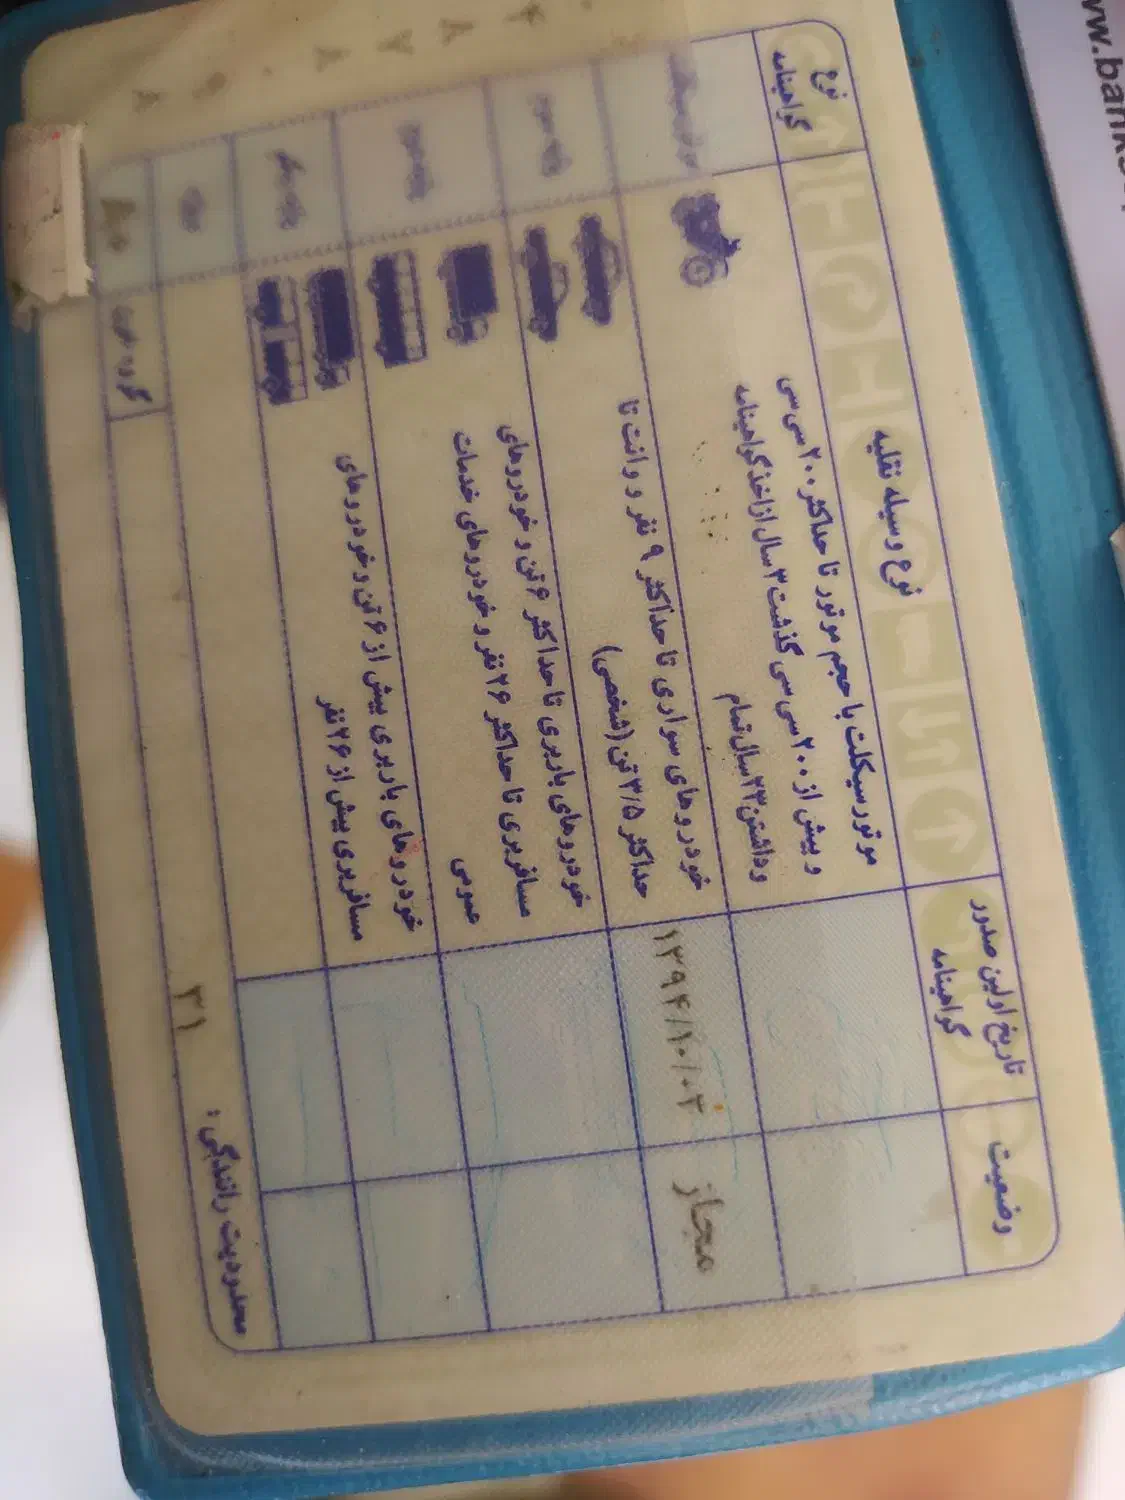 نوع گواهینامه
نوع وسیله نقلیه
تاریخ اولین صدور گواهینامه
وضعیت
موتورسیکلت با حجم موتور تا حداکثر ۲۰۰ سی سی
و بیش از ۲۰۰ سی سی گذشت ۳ سال از اخذ گواهینامه
و داشتن ۲۳ سال تمام
پایه سوم
خودروهای سواری تا حداکثر ۹ نفر و وانت تا
حداکثر ۳/۵ تن (شخصی)
۱۳۹۴/۱۰/۰۳
مجاز
خودروهای باربری تا حداکثر ۶ تن و خودروهای
مسافربری تا حداکثر ۲۶ نفر و خودروهای خدمات
عمومی
پایه یکم
خودروهای باربری بیش از ۶ تن و خودروهای
مسافربری بیش از ۲۶ نفر
محدودیت رانندگی :
۳۱
گروه خون
www.bank